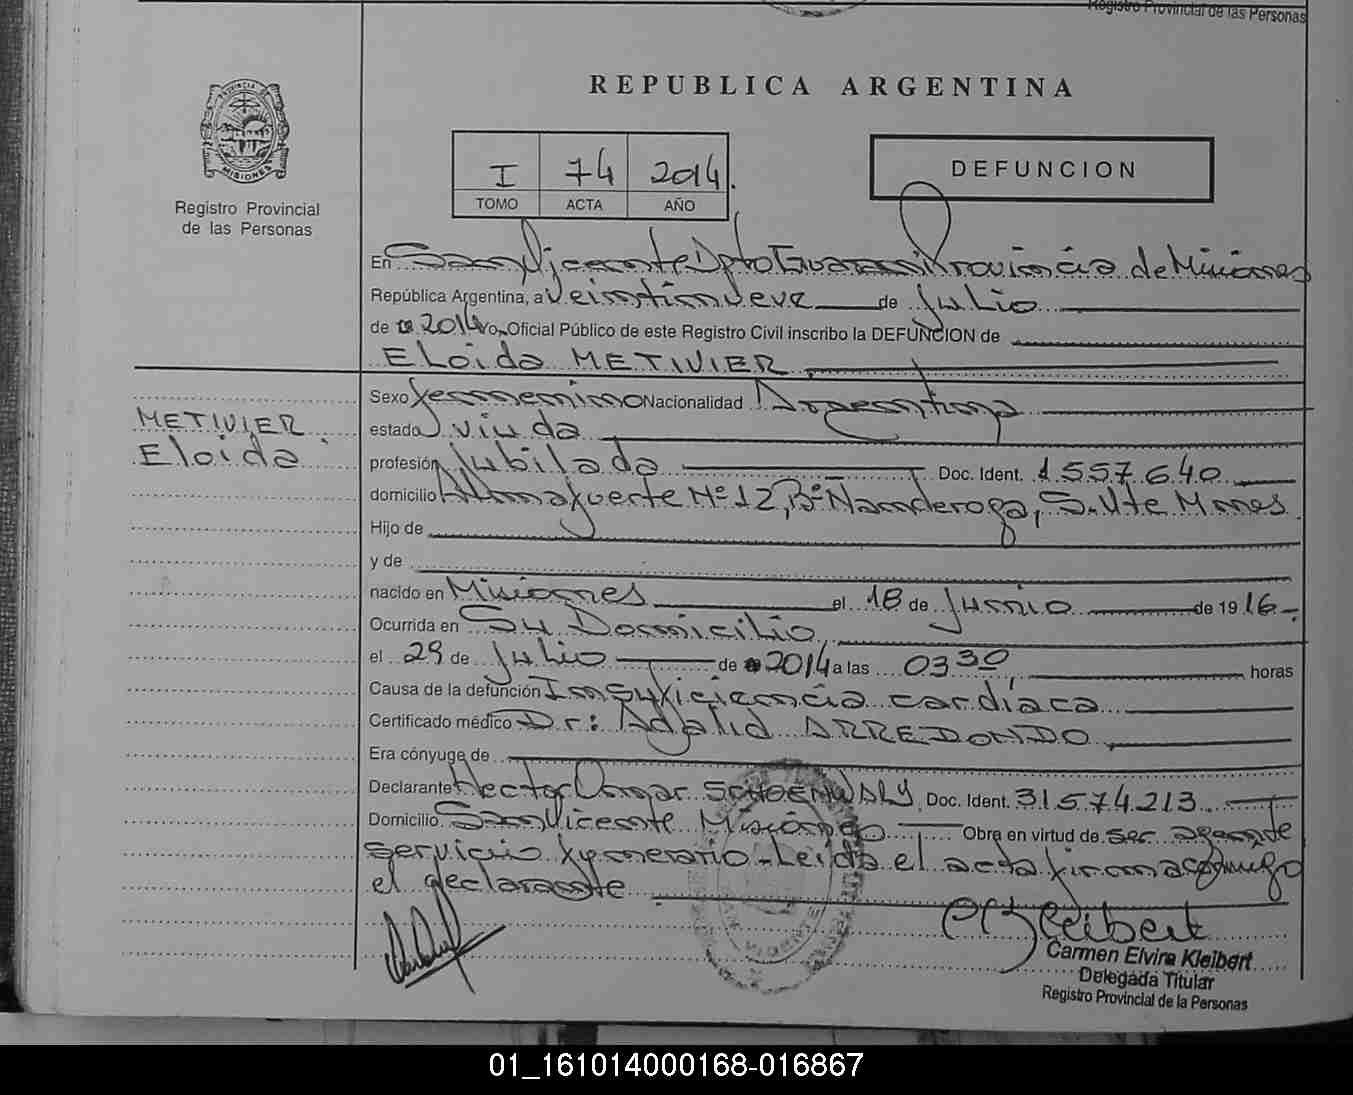 Registro Provincial de las Personas
REPUBLICA ARGENTINA
PROVINCIA DE
MISIONES
Registro Provincial
de las Personas
I 74 2014.
TOMO ACTA AÑO
DEFUNCION
En San Vicente Dpto Guarani Provincia de Misiones
República Argentina, a veintinueve de Julio
de 2014 yo, Oficial Público de este Registro Civil inscribo la DEFUNCION de
Eloida METIVIER
Sexo femenino Nacionalidad Argentina
METIVIER
Eloida
estado viuda
profesión jubilada Doc. Ident. 1.557.640
domicilio Almafuerte Nº 12, Bº Ñanderoga, S. Vte Mnes
Hijo de
y de
nacido en Misiones el 18 de Junio de 1916.-
Ocurrida en Su Domicilio
el 29 de Julio de 2014 a las 03 30 horas
Causa de la defunción Insuficiencia cardíaca
Certificado médico Dr: Adalid ARREDONDO
Era cónyuge de
Declarante Hector Omar Doc. Ident. 31.574.213
Domicilio San Vicente Misiones Obra en virtud de ser agente
servicio funerario - Leida el acta firma conmigo
el declarante
C Kleibert
Carmen Elvira Kleibert
Delegada Titular
Registro Provincial de la Personas
01_161014000168-016867